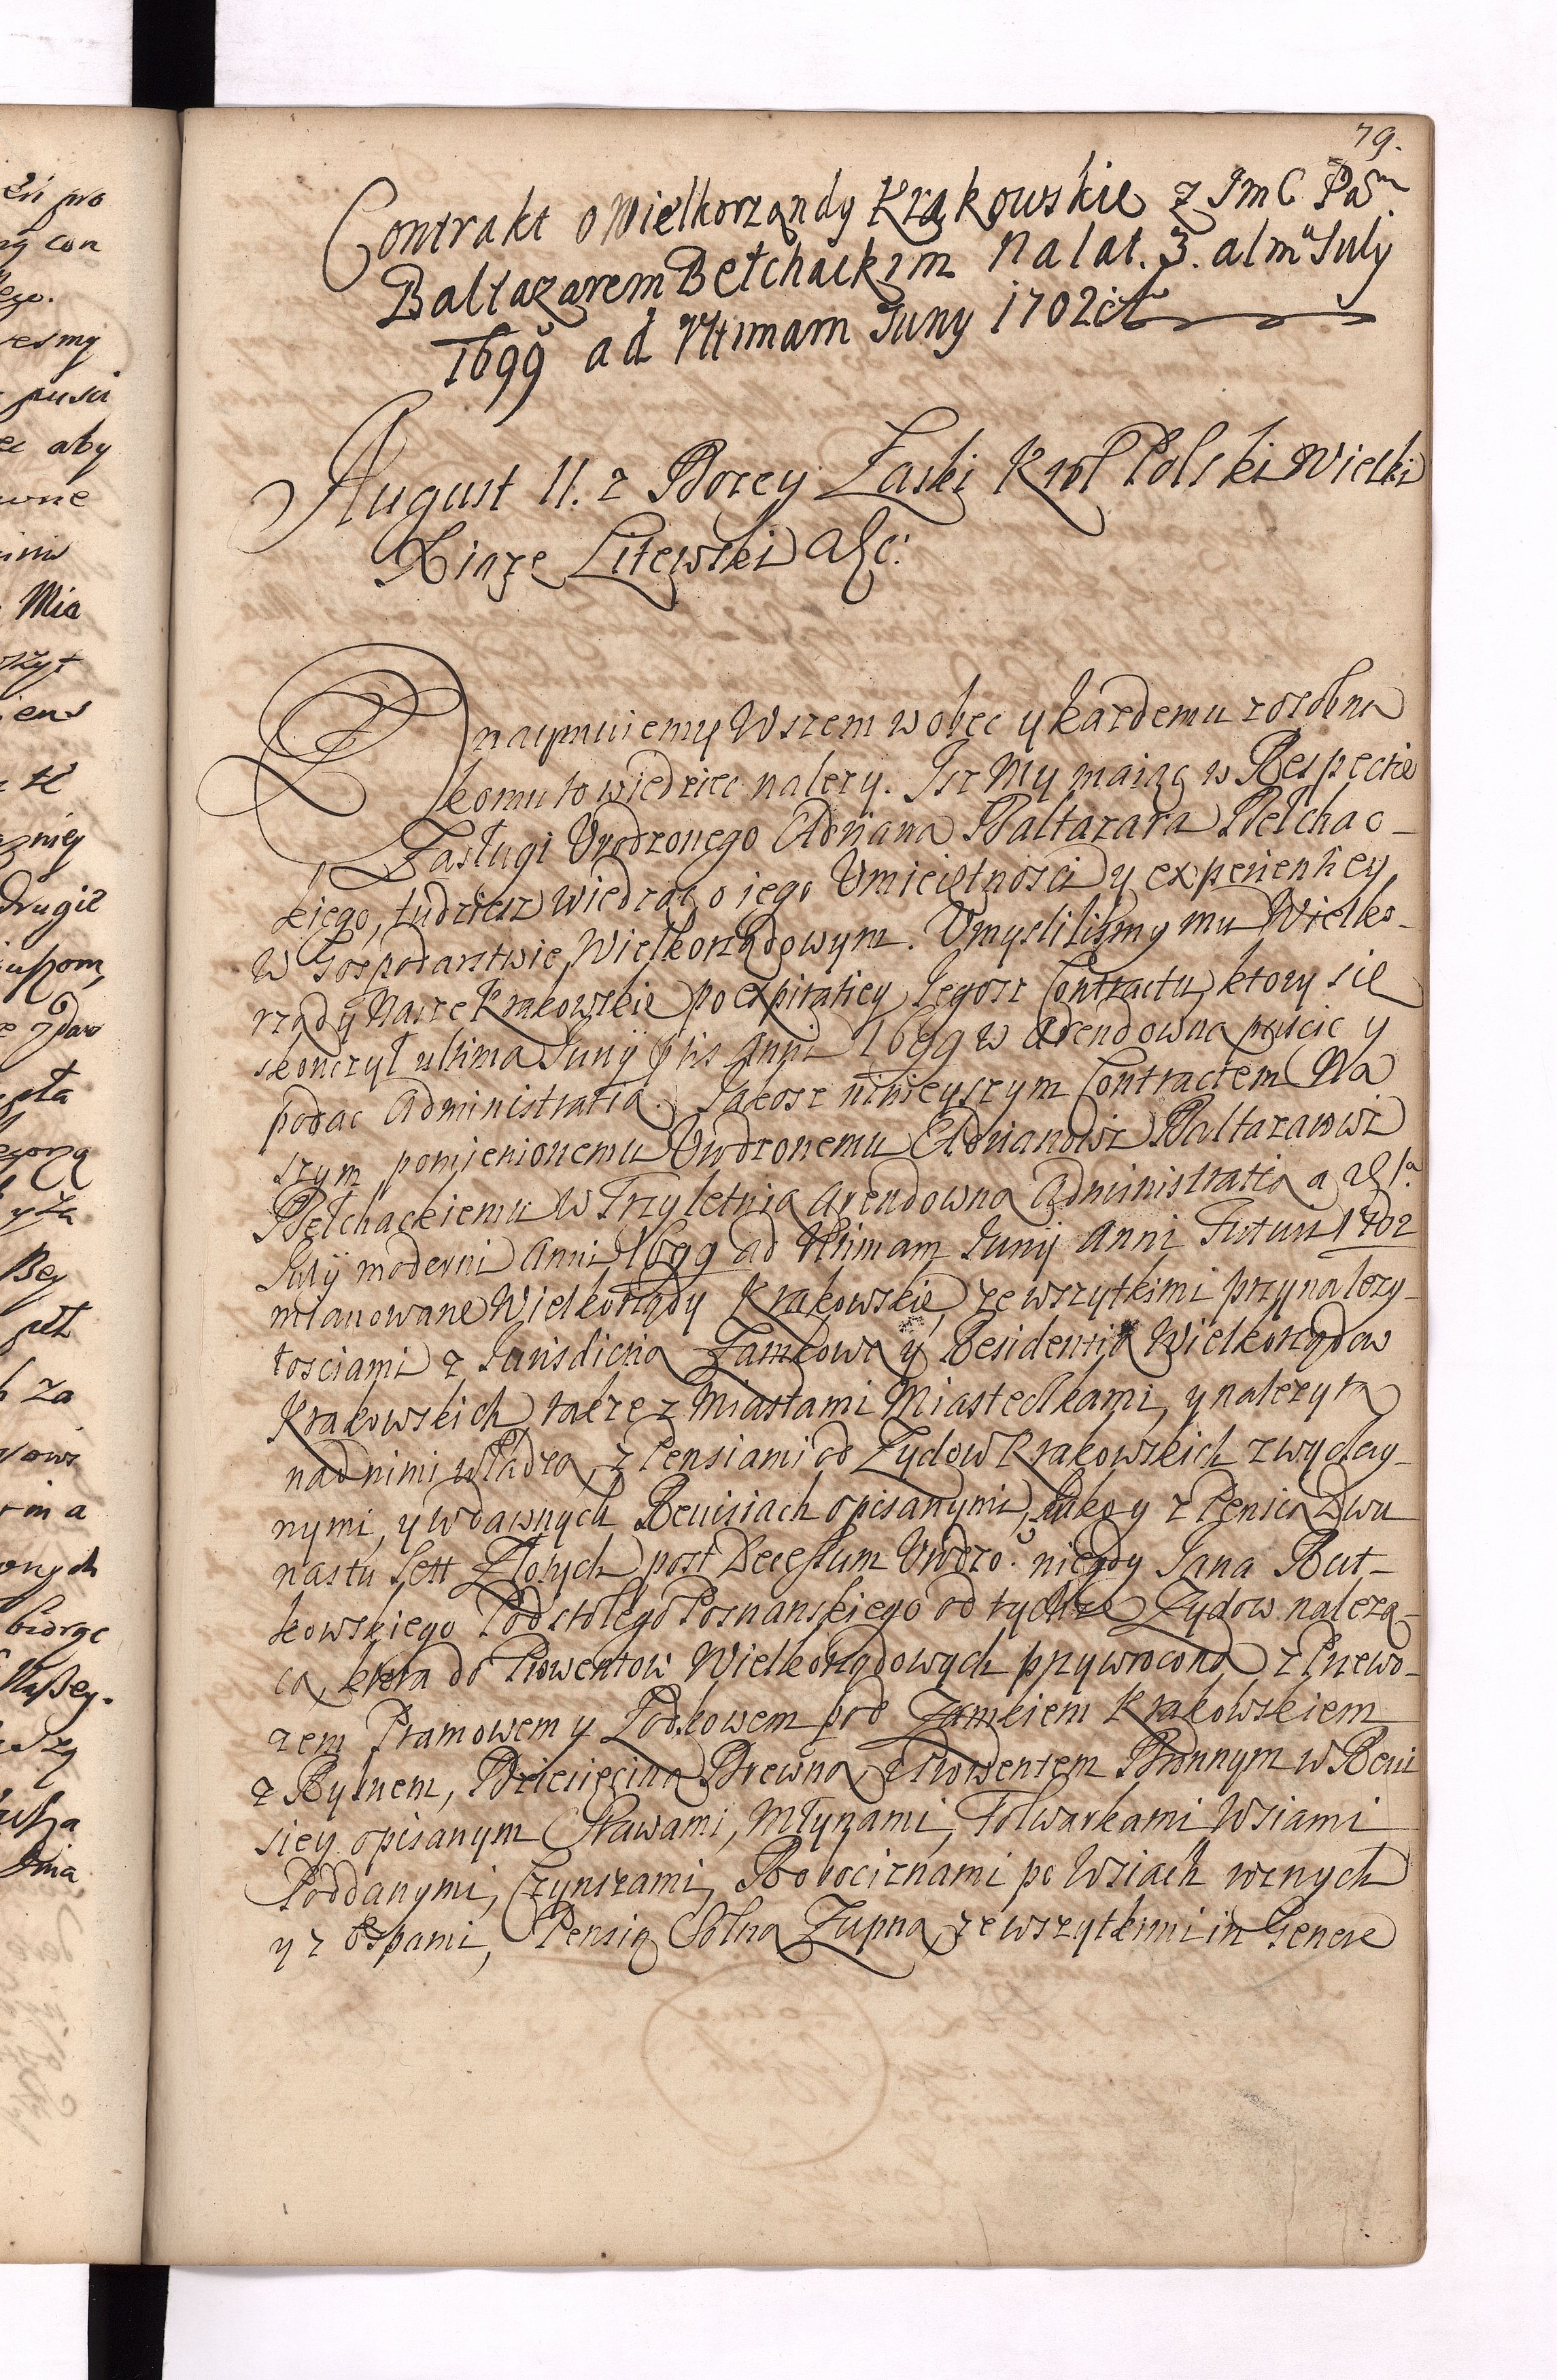 79.
Contrakt o Wielkorzandy Krakowskie z Jm C Pa&ͫ
Baltazarem Bełchackim na lat. 3. a 1mᵃ July
1699 ad Vltimam Juny 1702
August II. z Bozey Łaski Krol Polski Wielki
Xiaze Litewski &c:
Oznaymuiemy Wszem wobec y kazdemu zosobna
komu to wiedziec nalezy. Isz My maiąc w Respecie
Zasługi Vrodzonego Adriana Baltazara Bełchac-
kiego, tudziesz wiedząc o iego Vmieiętnosci y experientiey,
w Gospodarstwie Wielkorządowym. Vmyslilismy mu Wielko-
rządy Nasze Krakowskie po expiratiey Iegosz Contractu, ktory się
skonczył ultima Junij pntis Anni 1699 w Arendowną puscic y
podac Administratią. Iakosz ninieyszym Contractem Na
szym pomienionemu Vrodzonemu Adrianowi Baltazarowi
Bełchackiemu w Trzyletnią Arendowną Administratią a d. 1ᵃ
July moderni Anni 1699 ad Vltimam Junij Anni Futuri 1702
mianowane Wielkorządy Krakowskie, ze wszytkimi przynalezy-
tosciami z Jurisdictią Zamkową y Residentią Wielkorządow
Krakowskich, takze z Miastami Miasteckami, y nalezytą
nad nimi władzą, z Pensiami od Zydow Krakowskich zwyczay-
nymi, y w dawnych Rewisiach opisanymi, iako y z Pensią Dwu
nastu Sett Złotych post Decessum Vrodzo: niegdy Jana Rut-
kowskiego Podstolego Poznanskiego od tychze Zydow nalezą-
cą, ktora do Prowentow Wielkorządowych przywrocona, z Przewo-
zem Pramowem y Łodkowem pod Zamkiem Krakowskiem
z Rybnem, Dziesięciną Drewną, z Prowentem Bronnym w Rewi
siey opisanym Stawami, Młynami, Folwarkami, Wsiami
Poddanymi, Czynszami, Robociznami po Wsiach roznych
y z Ospami, Pensią Solną Zupną, ze wszytkimi in Genere